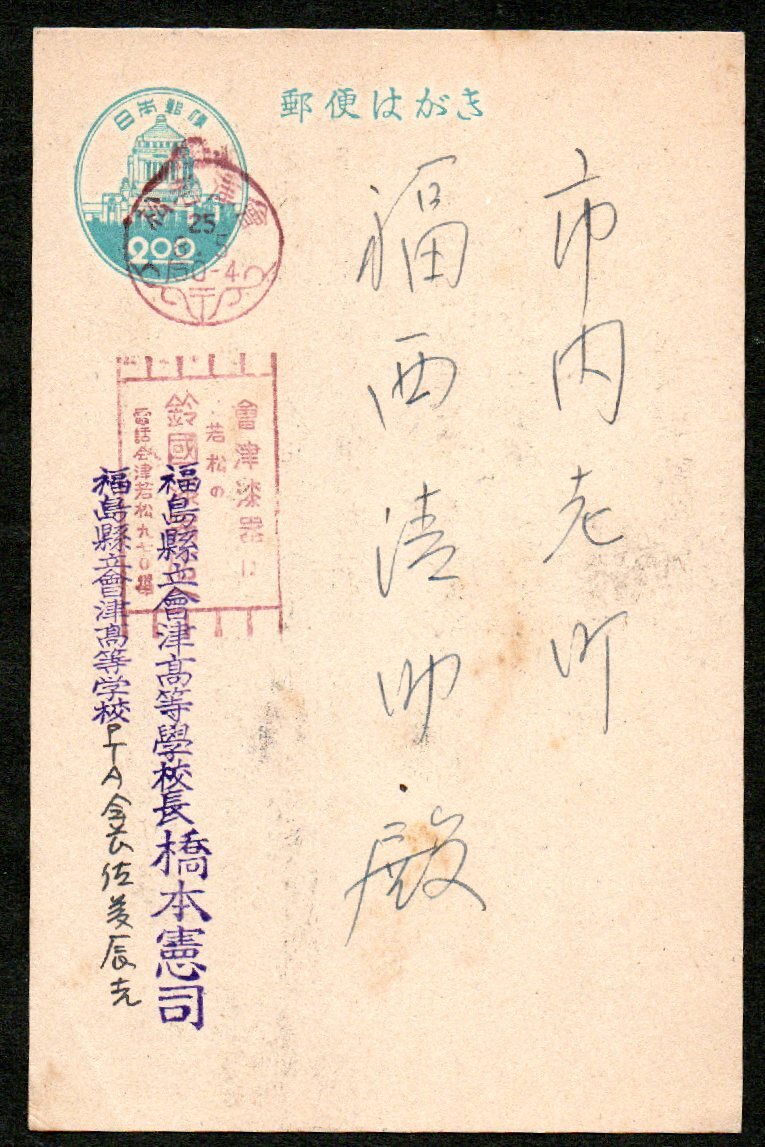 郵便はがき
日本郵便
2.00
市内老町
福西清助殿
25
0-4
會津漆器は
若松の
鈴國
電話会津若松九七〇番
福島縣立會津高等學校長橋本憲司
福島縣立會津高等学校PTA会長佐